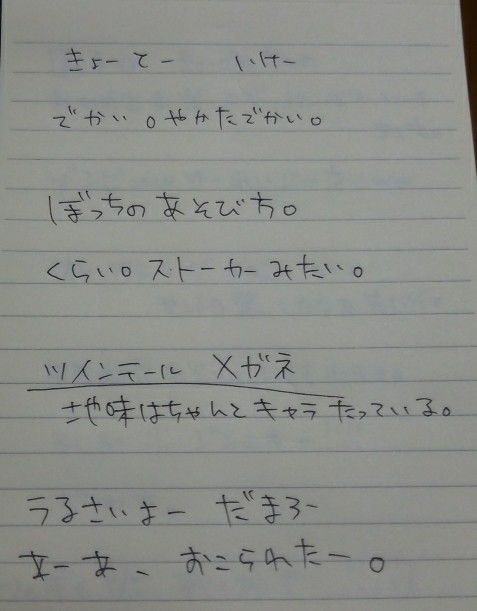 きょーてー いけー
でかい。やかたでかい。
ぼっちのあそびち。
くらい。ストーカーみたい。
ツインテール メガネ
地味はちゃんとキャラたっている。
うるさいよー だまろー
あーあ、おこられたー。